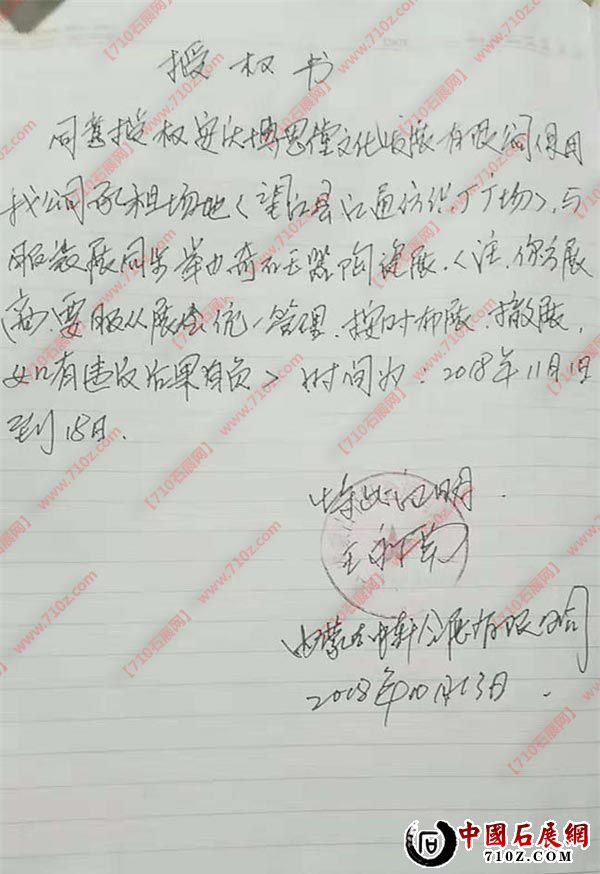 授权书
同意授权安庆博思堂文化发展有限公司使用
我公司承租场地《望江县江通纺织厂广场》,与
服装展同步举办奇石玉器陶瓷展。《注,你方展
商,要服从展会统一管理、按时布展、撤展,
如有违反后果自负》时间为:2018年11月1日
到18日.
特此证明.
内蒙古中轩会展有限公司
2018年10月13日.
【710石展网】www.710z.com
中國石展網
710Z.COM